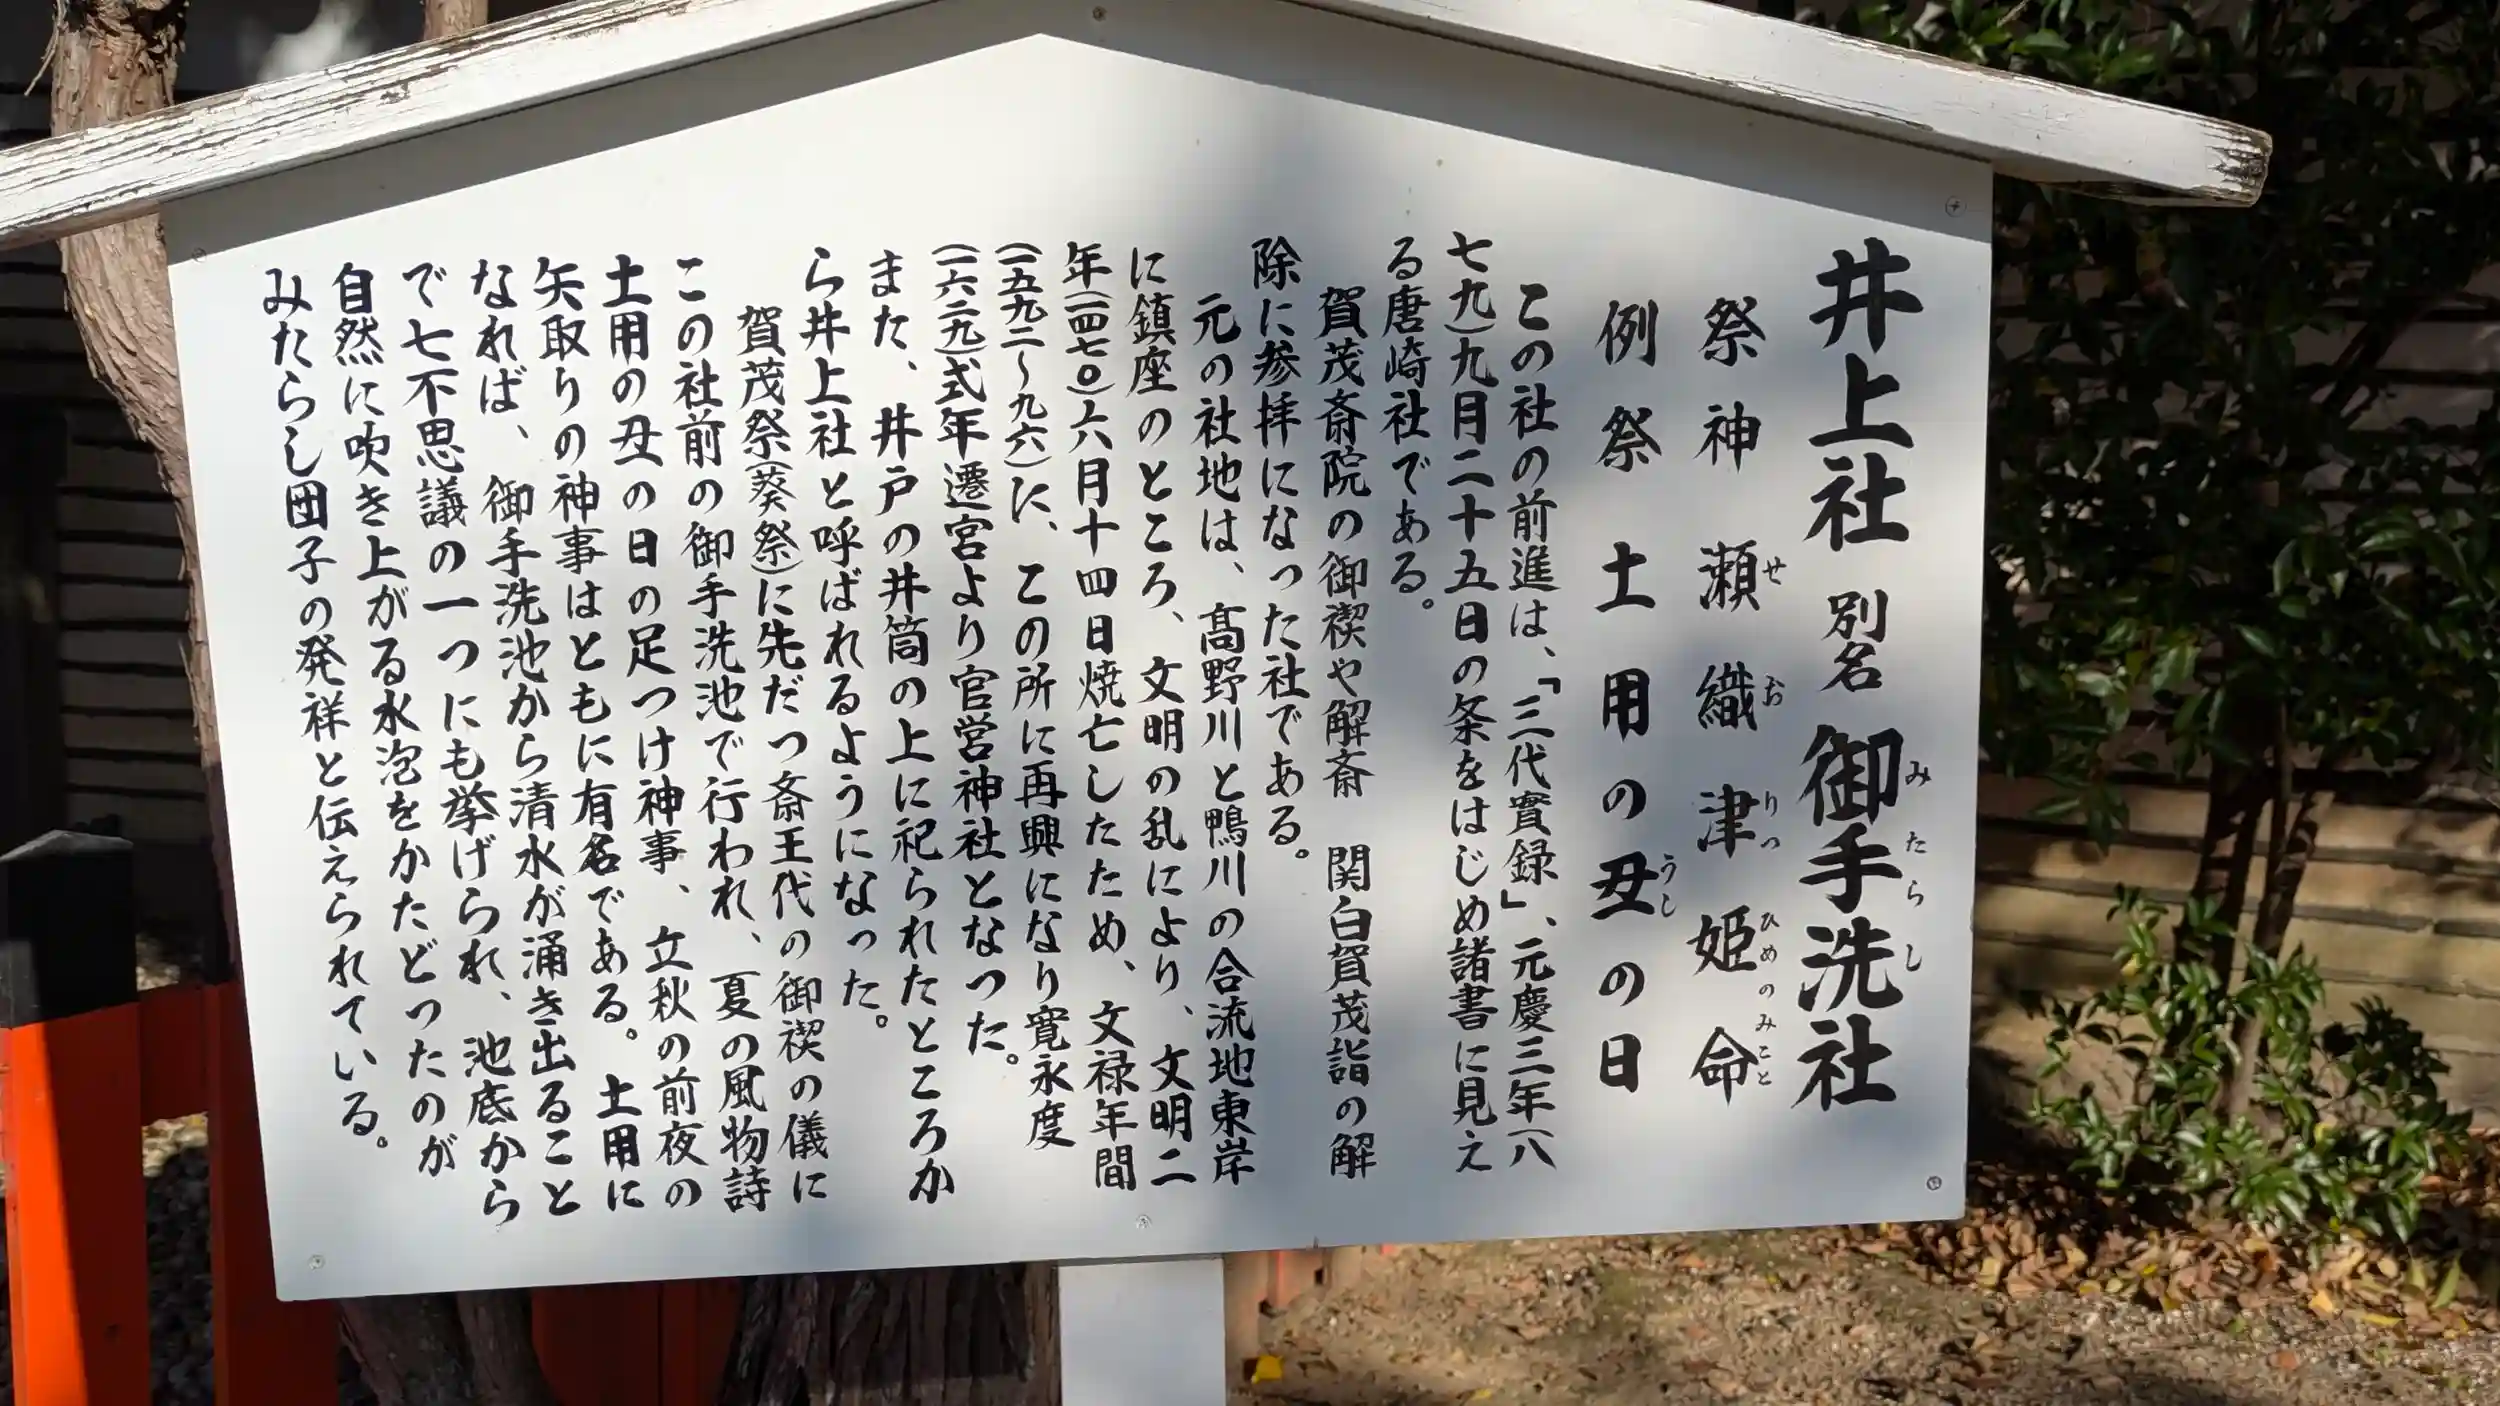 井上社 別名 御手洗社
みたらし
祭神 瀬織津姫命
せおりつひめのみこと
例祭 土用の丑の日
うし
この社の前進は、「三代實録」、元慶三年(八
七九)九月二十五日の条をはじめ諸書に見え
る唐崎社である。
賀茂斎院の御禊や解斎 関白賀茂詣の解
除に参拝になった社である。
元の社地は、髙野川と鴨川の合流地東岸
に鎮座のところ、文明の乱により、文明二
年(一四七〇)六月十四日焼亡したため、文禄年間
(一五九二〜九六)に、この所に再興になり寛永度
(一六二九)式年遷宮より官営神社となった。
また、井戸の井筒の上に祀られたところか
ら井上社と呼ばれるようになった。
賀茂祭(葵祭)に先だつ斎王代の御禊の儀に
この社前の御手洗池で行われ、夏の風物詩
土用の丑の日の足つけ神事、立秋の前夜の
矢取りの神事はともに有名である。土用に
なれば、御手洗池から清水が涌き出ること
で七不思議の一つにも挙げられ、池底から
自然に吹き上がる水泡をかたどったのが
みたらし団子の発祥と伝えられている。